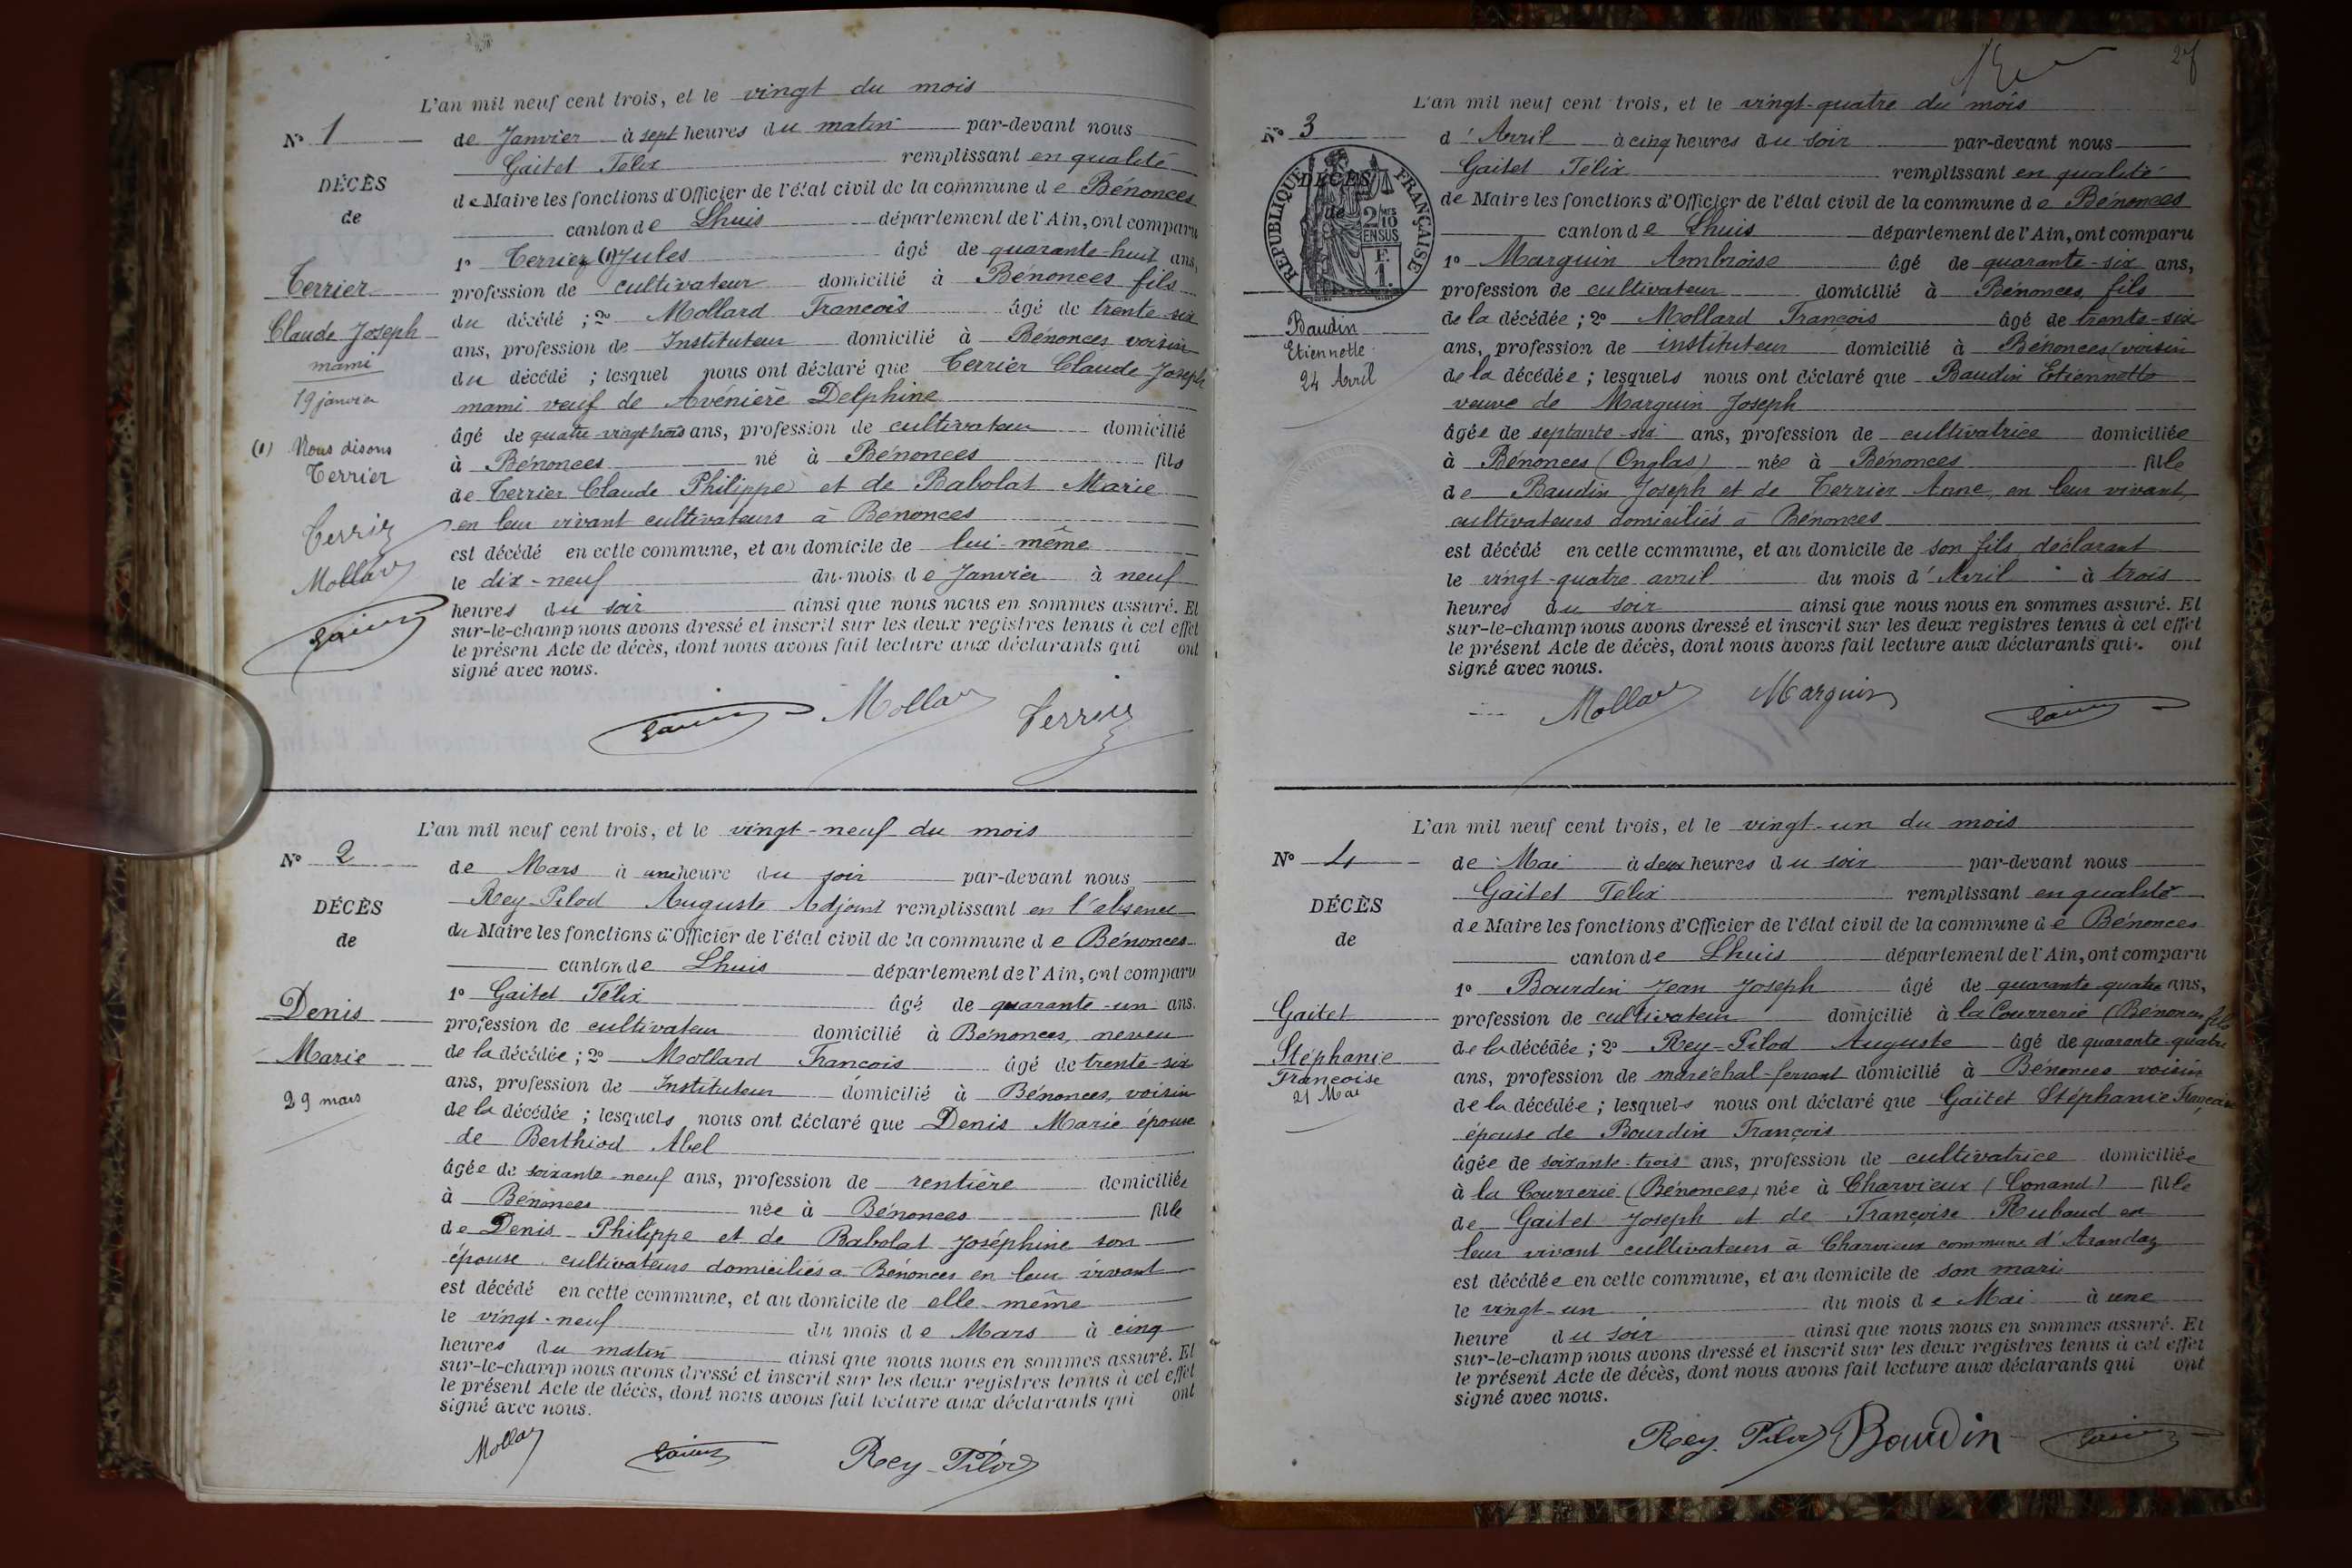 L'an mil neuf cent trois, et le vingt du mois
N° 1
de Janvier à sept heures du matin par-devant nous
Gaitet Félix remplissant en qualité
DÉCÈS
de Maire les fonctions d'Officier de l'état civil de la commune de Bénonces
de
canton de Lhuis département de l'Ain, ont comparu
1° Terrier (1) Jules âgé de quarante-huit ans,
Terrier
profession de cultivateur domicilié à Bénonces fils
Claude Joseph
du décédé ; 2° Mollard François âgé de trente-six
mami
ans, profession de Instituteur domicilié à Bénonces voisin
19 janvier
du décédé ; lesquel nous ont déclaré que Terrier Claude Joseph
mami veuf de Avénière Delphine
âgé de quatre-vingt trois ans, profession de cultivateur domicilié
(1) Nous disons
Terrier
à Bénonces né à Bénonces fils
de Terrier Claude Philippe et de Babolat Marie
en leur vivant cultivateurs à Bénonces
Terrier
est décédé en cette commune, et au domicile de lui-même
Mollard
le dix-neuf du mois de Janvier à neuf
heures du soir ainsi que nous nous en sommes assuré. Et
sur-le-champ nous avons dressé et inscrit sur les deux registres tenus à cet effet
le présent Acte de décès, dont nous avons fait lecture aux déclarants qui ont
signé avec nous.
Mollard Terrier
L'an mil neuf cent trois, et le vingt-neuf du mois
N° 2
de Mars à une heure du soir par-devant nous
Rey-Pilod Auguste Adjoint remplissant en l'absence
DÉCÈS
du Maire les fonctions d'Officier de l'état civil de la commune de Bénonces
de
canton de Lhuis département de l'Ain, ont comparu
1° Gaitet Félix âgé de quarante-un ans.
Denis
profession de cultivateur domicilié à Bénonces, neveu
Marie
de la décédée ; 2° Mollard François âgé de trente-six
ans, profession de Instituteur domicilié à Bénonces, voisin
29 mars
de la décédée ; lesquels nous ont déclaré que Denis Marie épouse
de Berthiod Abel
âgée de soixante-neuf ans, profession de rentière domiciliée
à Bénonces née à Bénonces fille
de Denis Philippe et de Babolat Joséphine son
épouse cultivateurs domiciliés à Bénonces en leur vivant
est décédé en cette commune, et au domicile de elle-même
le vingt-neuf du mois de Mars à cinq
heures du matin ainsi que nous nous en sommes assuré. Et
sur-le-champ nous avons dressé et inscrit sur les deux registres tenus à cet effet
le présent Acte de décès, dont nous avons fait lecture aux déclarants qui ont
signé avec nous.
Mollard Rey-Pilod
L'an mil neuf cent trois, et le vingt-quatre du mois
N° 3
d'Avril à cinq heures du soir par-devant nous
Gaitet Félix remplissant en qualité
DÉCÈS
RÉPUBLIQUE FRANÇAISE
2/10 EN SUS
F. 1.
de Maire les fonctions d'Officier de l'état civil de la commune de Bénonces
de
canton de Lhuis département de l'Ain, ont comparu
1° Marguin Ambroise âgé de quarante-six ans,
profession de cultivateur domicilié à Bénonces, fils
Baudin
de la décédée ; 2° Mollard François âgé de trente-six
Etiennette
ans, profession de instituteur domicilié à Bénonces (voisin
24 Avril
de la décédée ; lesquels nous ont déclaré que Baudin Etiennette
veuve de Marguin Joseph
âgée de septante-six ans, profession de cultivatrice domiciliée
à Bénonces (Onglas) née à Bénonces fille
de Baudin Joseph et de Terrier Anne, en leur vivant,
cultivateurs domiciliés à Bénonces
est décédé en cette commune, et au domicile de son fils déclarant
le vingt-quatre avril du mois d'Avril à trois
heures du soir ainsi que nous nous en sommes assuré. Et
sur-le-champ nous avons dressé et inscrit sur les deux registres tenus à cet effet
le présent Acte de décès, dont nous avons fait lecture aux déclarants qui ont
signé avec nous.
Mollard Marguin
L'an mil neuf cent trois, et le vingt-un du mois
N° 4
de Mai à deux heures du soir par-devant nous
Gaitet Félix remplissant en qualité
DÉCÈS
de Maire les fonctions d'Officier de l'état civil de la commune de Bénonces
de
canton de Lhuis département de l'Ain, ont comparu
1° Bourdin Jean Joseph âgé de quarante-quatre ans,
Gaitet
profession de cultivateur domicilié à la Courrerie (Bénonces fils
Stéphanie
de la décédée ; 2° Rey-Pilod Auguste âgé de quarante-quatre
Françoise
ans, profession de maréchal-ferrant domicilié à Bénonces voisin
21 Mai
de la décédée ; lesquels nous ont déclaré que Gaitet Stéphanie Françoise
épouse de Bourdin François
âgée de soixante-trois ans, profession de cultivatrice domiciliée
à la Courrerie (Bénonces) née à Charvieux (Conand) fille
de Gaitet Joseph et de Françoise Rubaud en
leur vivant cultivateurs à Charvieux commune d'Arandaz
est décédée en cette commune, et au domicile de son mari
le vingt-un du mois de Mai à une
heure du soir ainsi que nous nous en sommes assuré. Et
sur-le-champ nous avons dressé et inscrit sur les deux registres tenus à cet effet
le présent Acte de décès, dont nous avons fait lecture aux déclarants qui ont
signé avec nous.
Rey-Pilod Bourdin